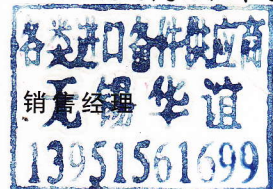 各类进口备件供应商
无锡华谊
销售经理
13951561699